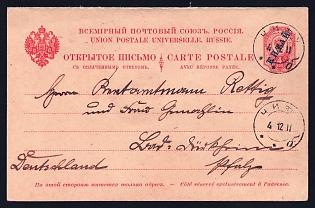 ВСЕМІРНЫЙ ПОЧТОВЫЙ СОЮЗЪ. РОССІЯ.
UNION POSTALE UNIVERSELLE. RUSSIE.
ОТКРЫТОЕ ПИСЬМО CARTE POSTALE
СЪ ОПЛАЧЕННЫМЪ ОТВѢТОМЪ. AVEC RÉPONSE PAYÉE.
КИТАЙ
Herrn Rentamtmann Rettig
und Frau Gemahlin
ЧИФУ
4 12 11
Bad-Dürkheim
Deutschland Pfalz
На этой сторонѣ пишется только адресъ. — Côté réservé exclusivement à l'adresse.